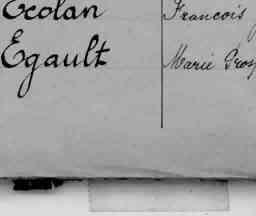 Ecolan François
Egault Marie